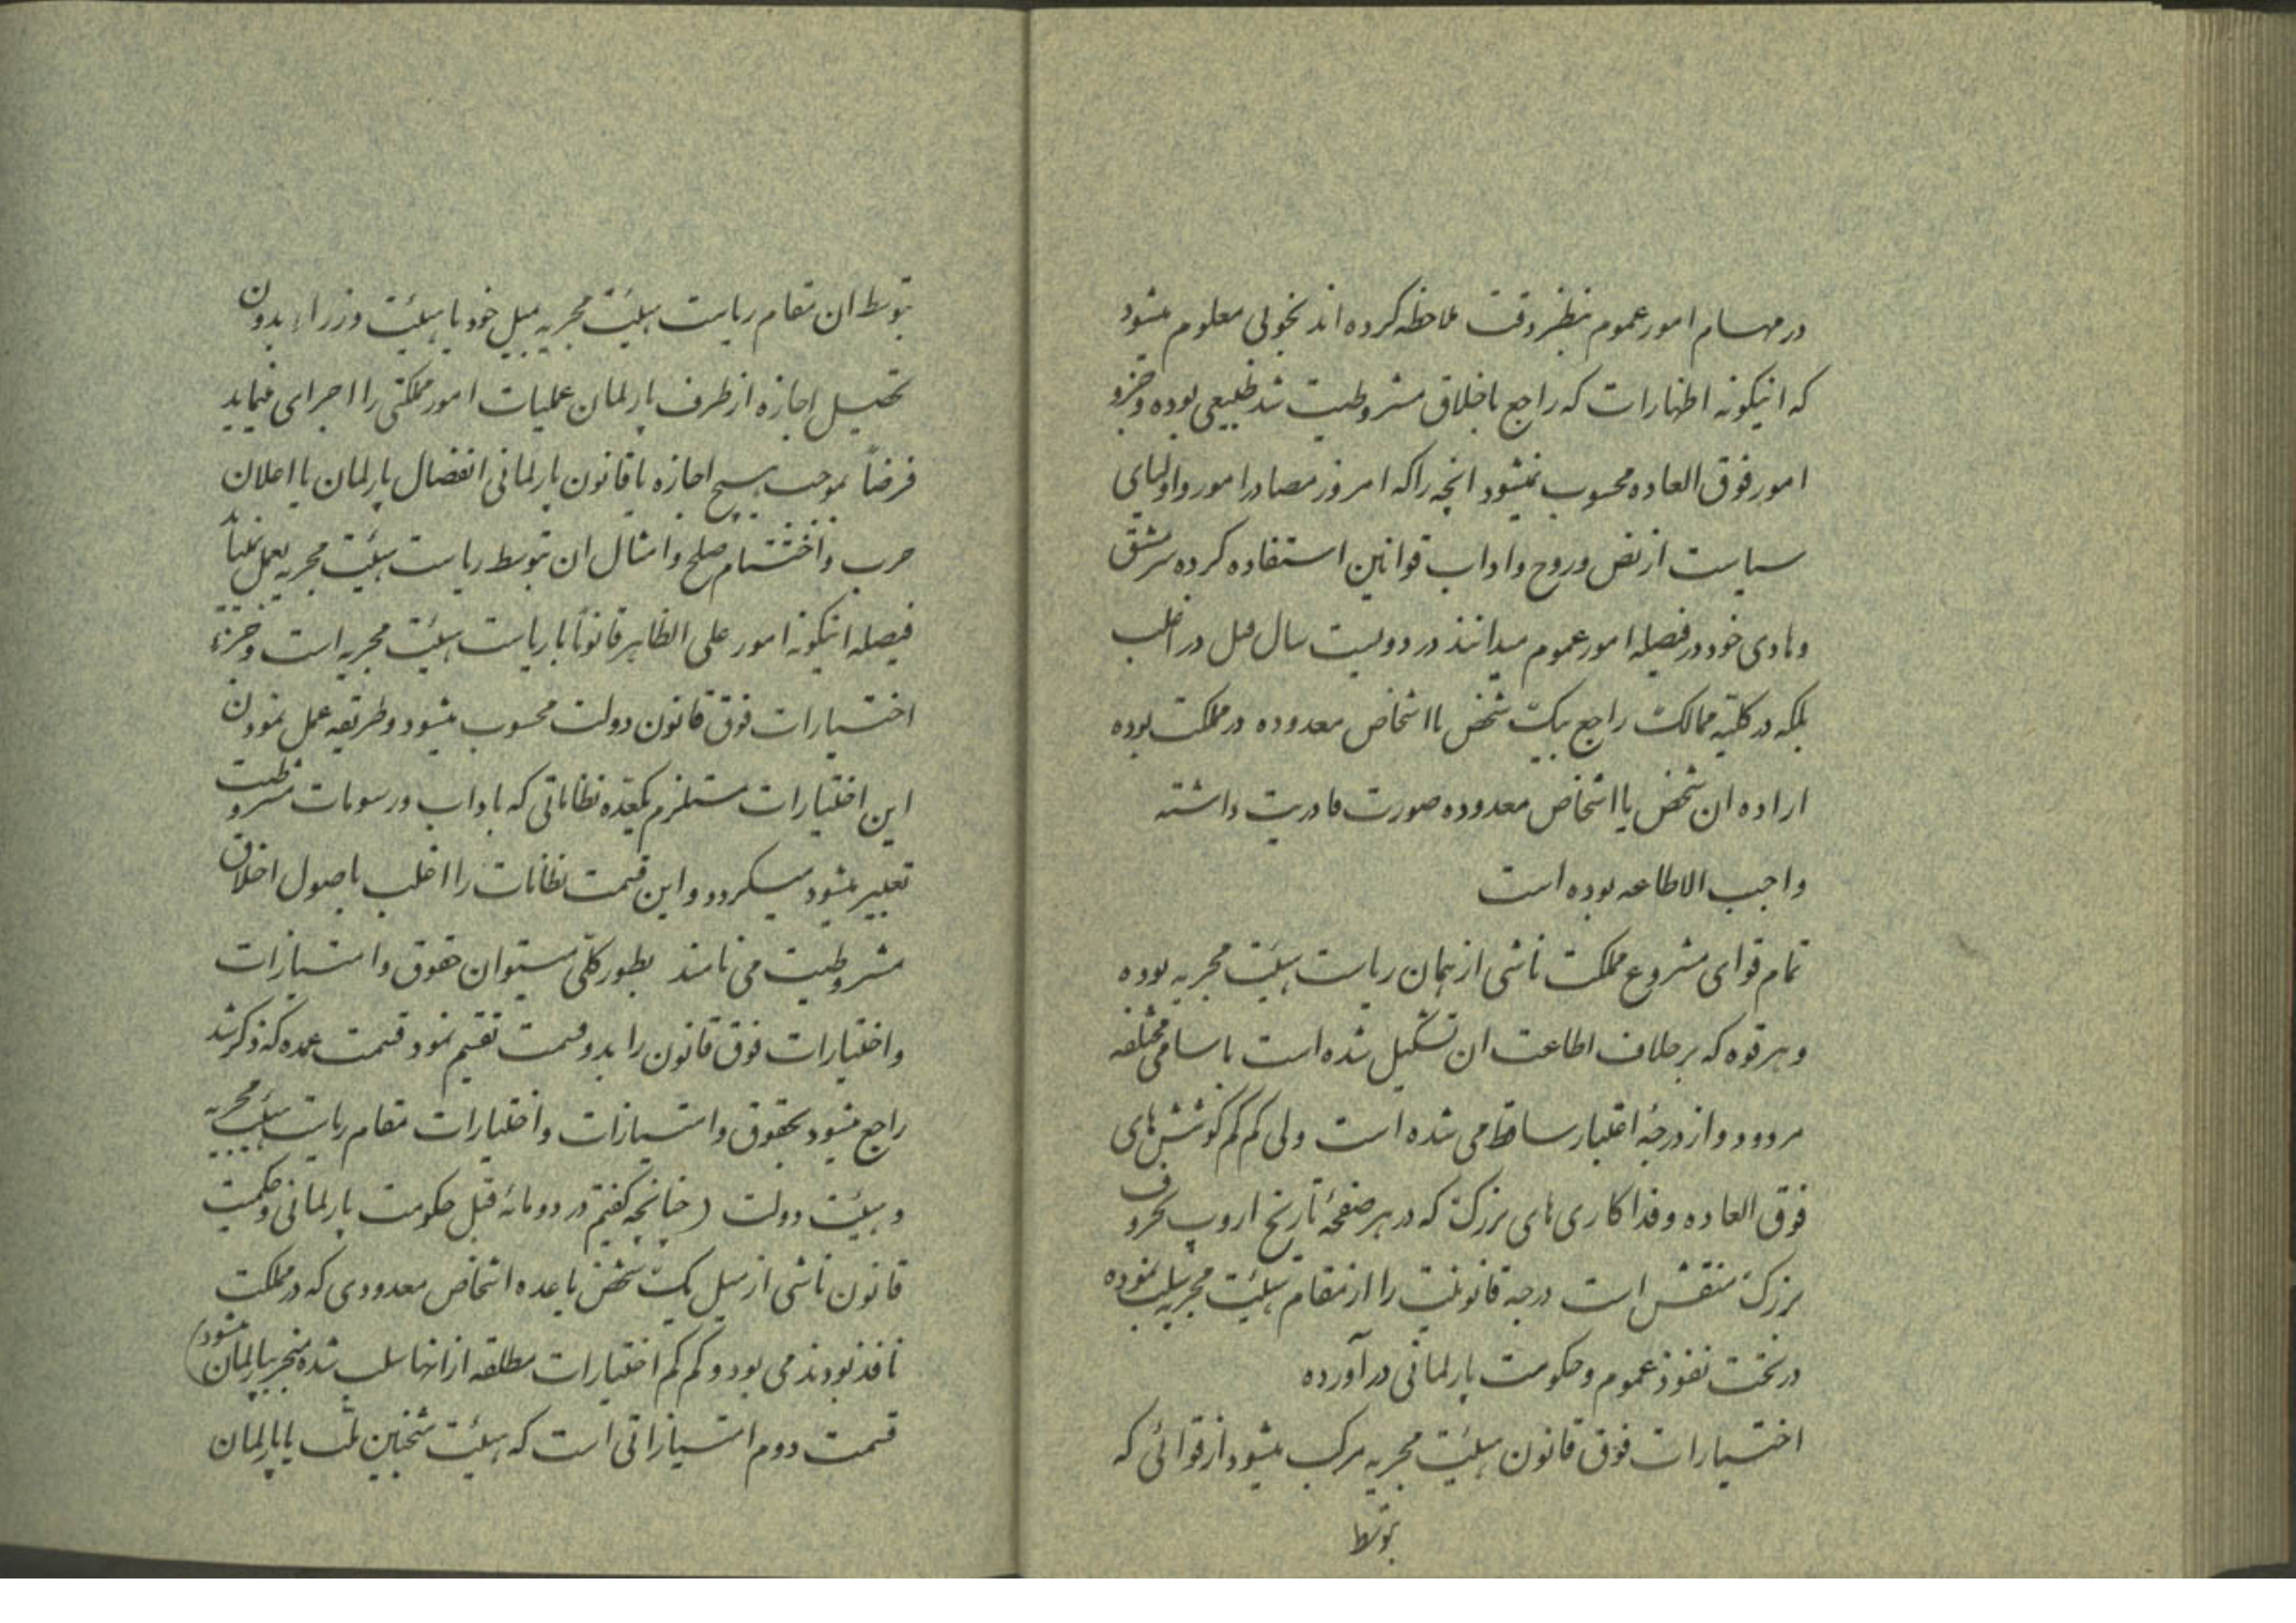 در مهسام امور عموم بنظر وقت ملاحظه کرده اند بخوبی معلوم میشود
که اینگونه اظهارات که راجع باخلاق مشروطیت شد طبیعی بوده و جزو
امور فوق العاده محسوب نمیشود انچه را که امروز مصادر امور و اولیای
سیاست از نص و روح و اداب قوانین استفاده کرده سرمشق
و هادی خود در فیصله امور عموم میدانند در دویست سال قبل در اغلب
بلکه در کلتیه ممالک راجع بیک شخص یا اشخاص معدوده در مملکت بوده
اراده ان شخص یا اشخاص معدوده صورت قادریت داشته
واجب الاطاعه بوده است
تمام قوای مشروع مملکت ناشی از همان ریاست هیئت مجریه بوده
و هر قوه که بر خلاف اطاعت ان تشکیل شده است باسامی مختلفه
مردود و از درجهٔ اعتبار ساقط می شده است ولی کم کم کوشش های
فوق العاده و فداکاری های بزرک که در هر صفحهٔ تاریخ اروپ بحروف
بزرک منقش است درجه قانونیت را از مقام هیئت مجریه سلب نموده
در تحت نفوذ عموم و حکومت پارلمانی در آورده
اختیارات فوق قانون هیئت مجریه مرکب میشود از قوائی که
بتوسط
بتوسط ان مقام ریاست هیئت مجریه بمیل خود یا هیئت وزراء بدون
تحصیل اجازه از طرف پارلمان عملیات امور مملکتی را اجرای مینماید
فرضاً بموجب هیچ اجازه یا قانون پارلمانی انفصال پارلمان یا اعلان
حرب و اختتام صلح و امثال ان بتوسط ریاست هیئت مجریه بعمل نمیاید
فیصله اینگونه امور علی الظاهر قانوناً با ریاست هیئت مجریه است و جزء
اختیارات فوق قانون دولت محسوب میشود و طریقه عمل نمودن
این اختیارات مستلزم یکعده نظاماتی که باداب و رسومات مشروطیت
تعبیر میشود میکردد و این قسمت نظامات را اغلب باصول اخلاق
مشروطیت می نامند بطور کلی میتوان حقوق و امتیازات
و اختیارات فوق قانون را بدو قسمت تقسیم نمود قسمت عمده که ذکر شد
راجع میشود بحقوق و امتیازات و اختیارات مقام ریاست هیئت مجریه
و هیئت دولت (چنانچه کفتیم در دو مائه قبل حکومت پارلمانی و حکمیت
قانون ناشی از میل یک شخص یا عده اشخاص معدودی که در مملکت
نافذ بودند می بود و کم کم اختیارات مطلقه از انها سلب شده منجر بپارلمان میشود)
قسمت دوم امتیازاتی است که هیئت منتخبین ملت یا پارلمان